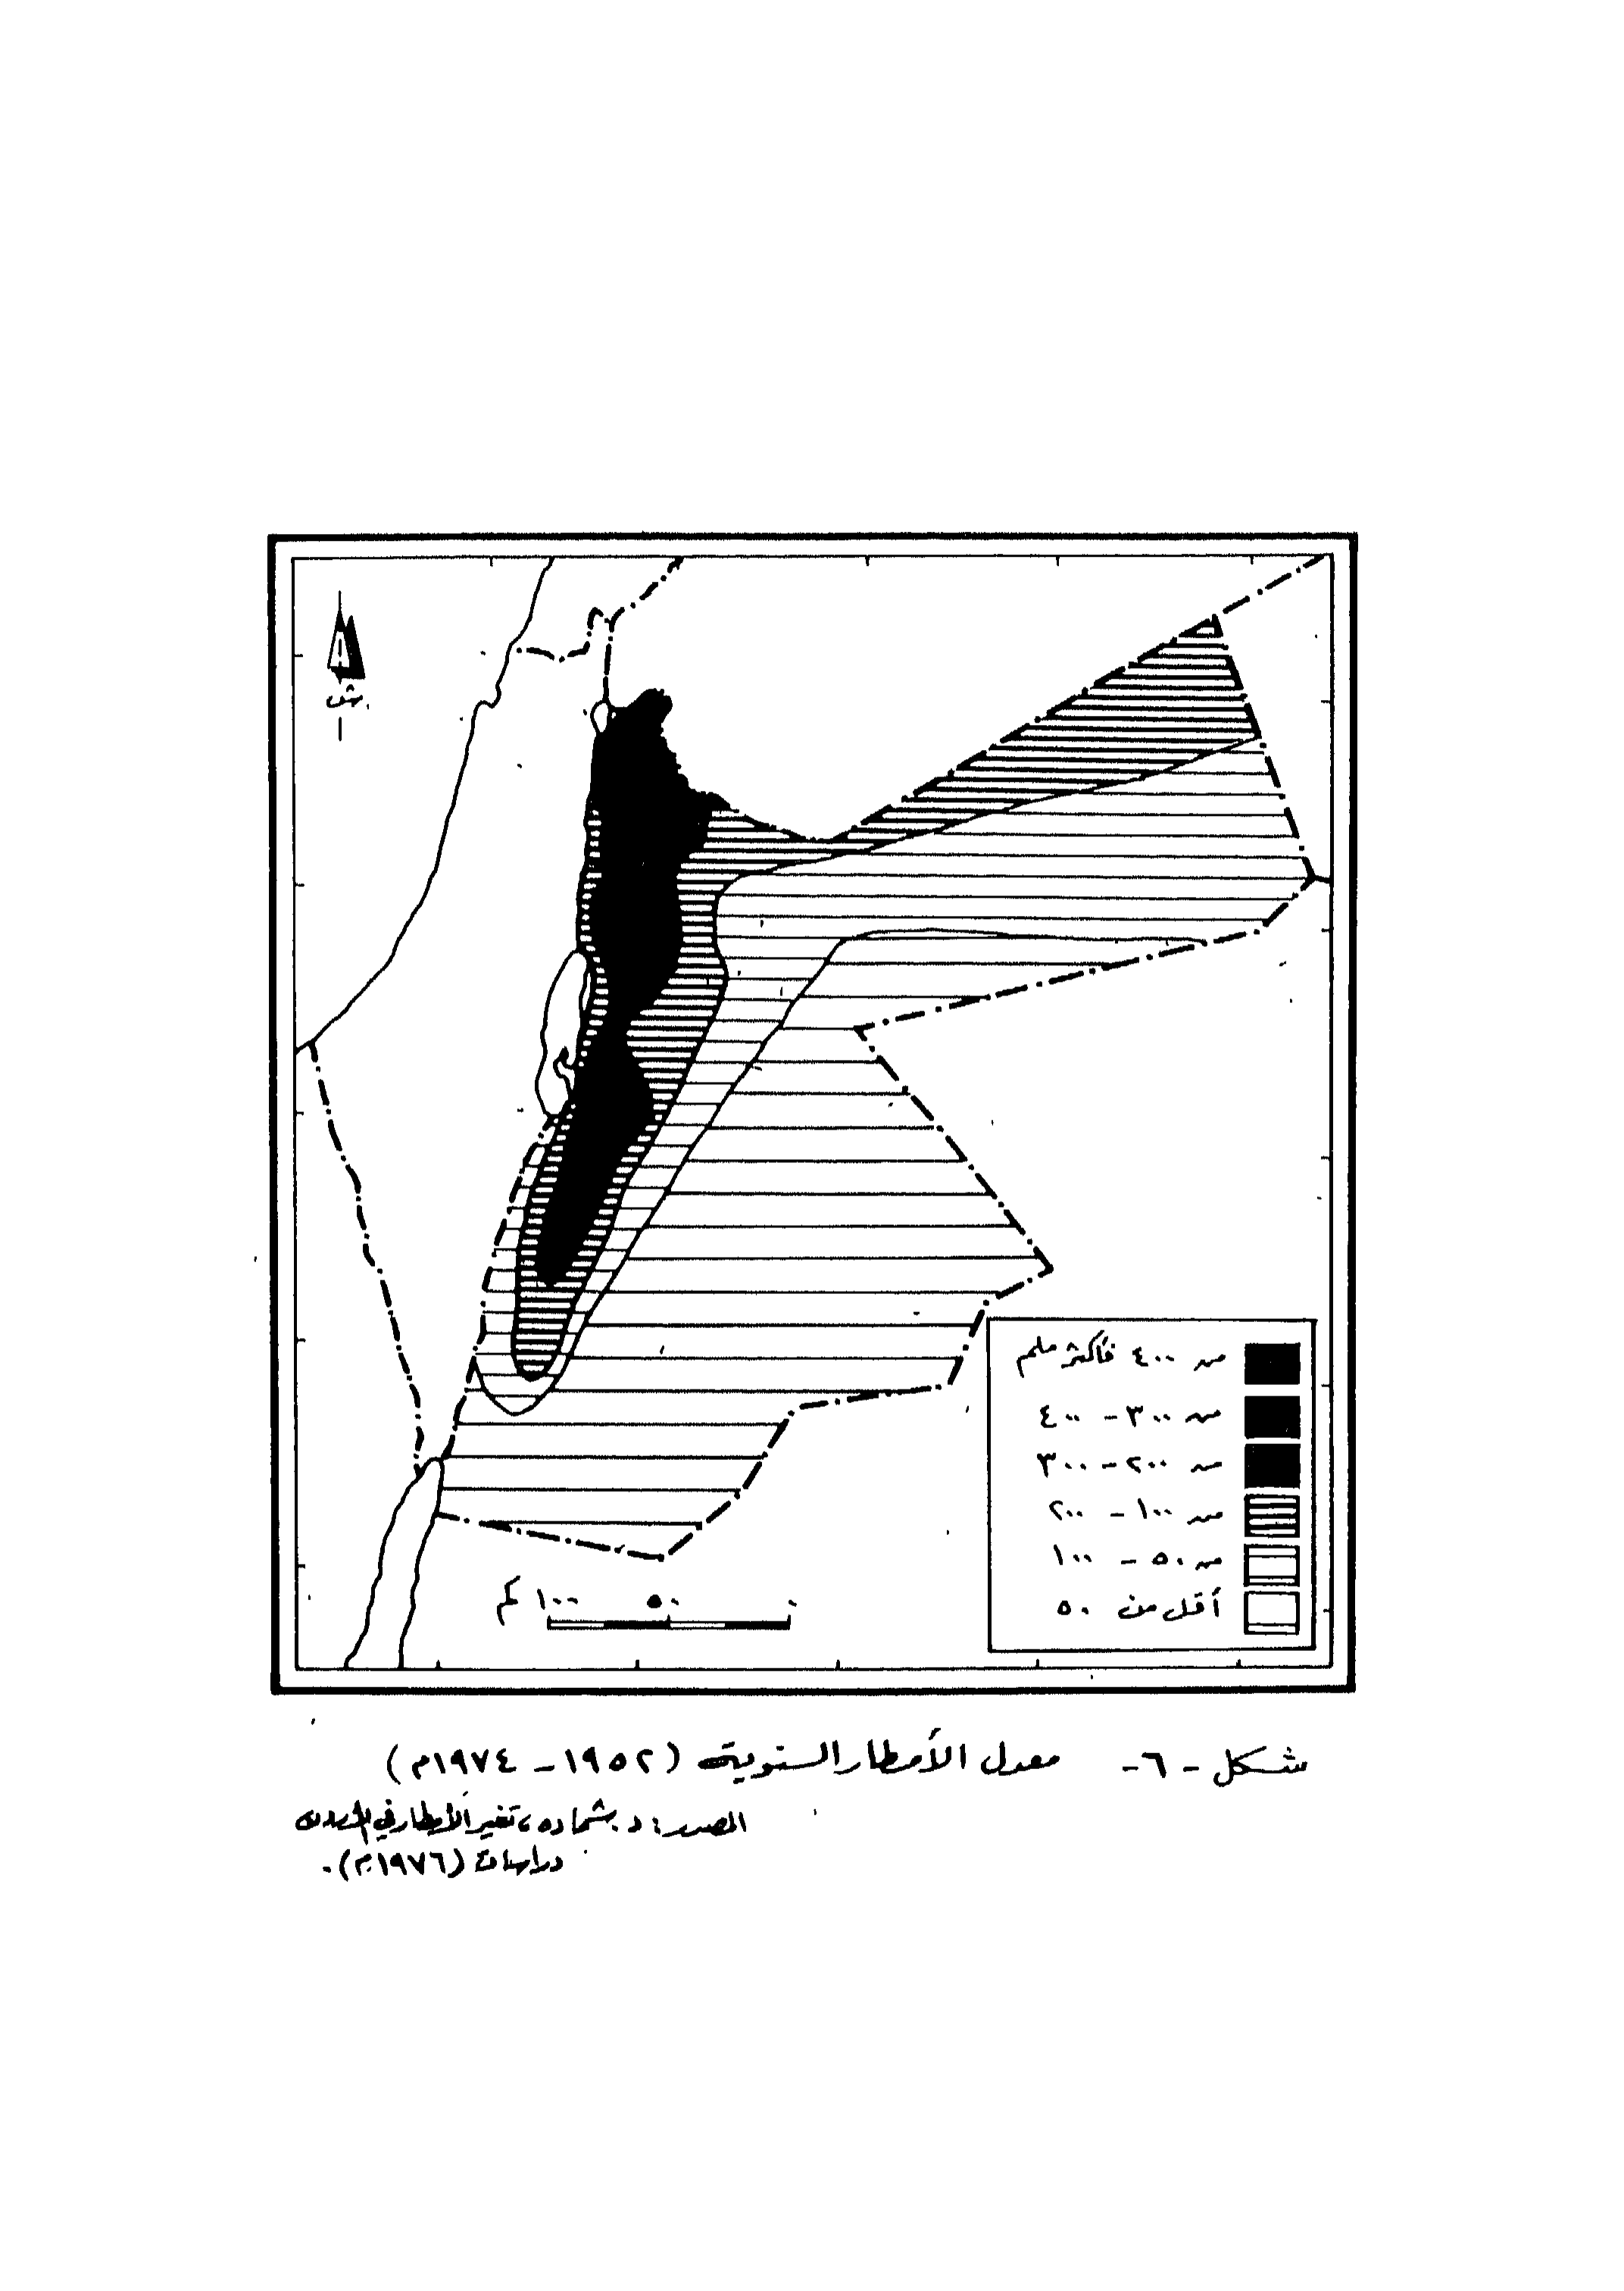 ش
من ٤٠٠ فأكثر ملم
من ٣٠٠ - ٤٠٠
من ٢٠٠ - ٣٠٠
من ١٠٠ - ٢٠٠
من ٥٠ - ١٠٠
أقل من ٥٠
٠ ٥٠ ١٠٠ كم
شكل - ٦ - معدل الأمطار السنوية (١٩٥٢ - ١٩٧٤م)
المصدر: د. شحاده، تغير الأمطار في الأردن
دراسات (١٩٧٦م).